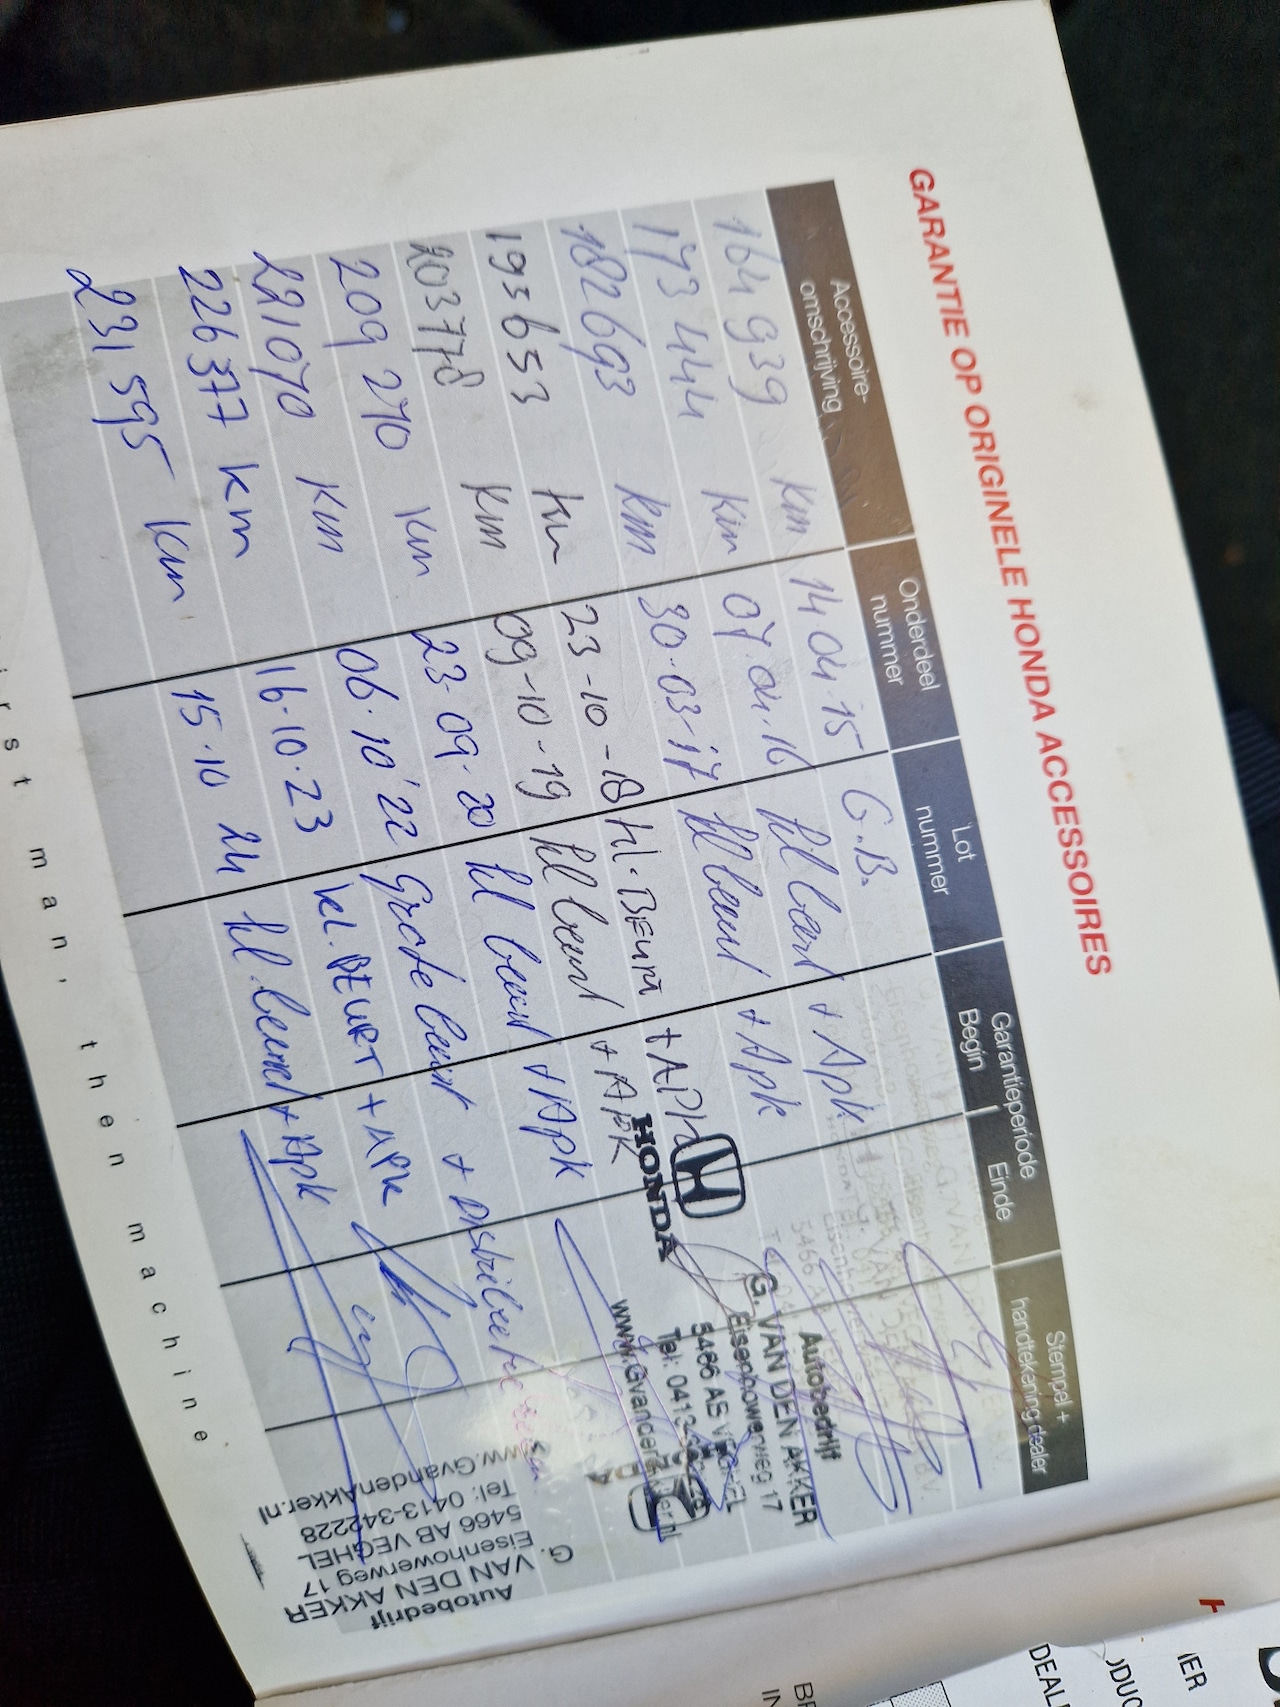 GARANTIE OP ORIGINELE HONDA ACCESSOIRES
Accessoire-
omschrijving
Onderdeel
nummer
Lot
nummer
Garantieperiode
Begin
Einde
Stempel +
handtekening dealer
164 939 km 14 04 15 G.B.
173 444 km 07 04 16 kl beurt + Apk
182693 km 30-03-17 kl beurt + Apk
195653 km 23-10-18 Kl. Beurt + APK
203778 km 09-10-19 kl beurt + APK
209 270 km 23-09-20 kl beurt + Apk
221070 km 06-10'22 Grote beurt + Distributie
226377 km 16-10-23 kl. BEURT + APK
231 595 km 15-10 24 kl. beurt + Apk
HONDA
Autobedrijf
G. VAN DEN AKKER
Eisenhowerweg 17
5466 AB VEGHEL
Autobedrijf
G. VAN DEN AKKER
Eisenhowerweg 17
5466 AB VEGHEL
Tel: 0413-342228
www.GvandenAkker.nl
irst man, then machine